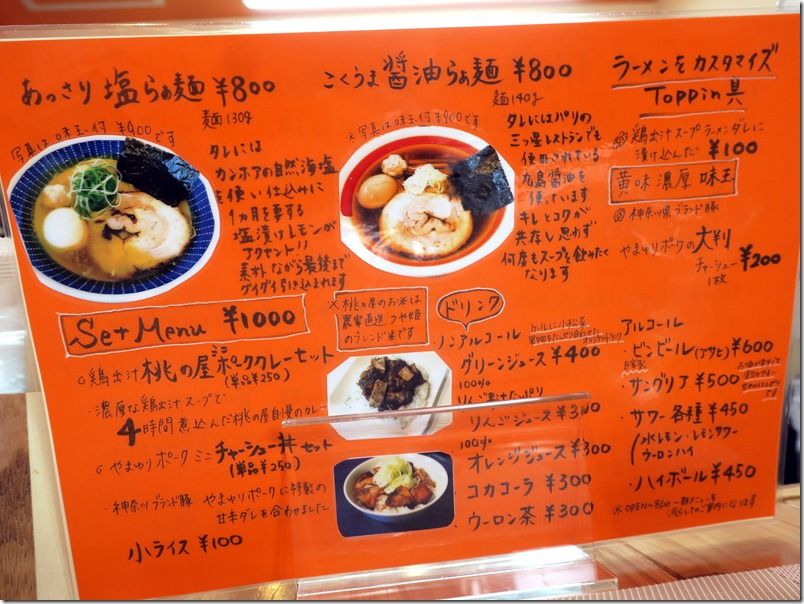 あっさり 塩らぁ麺 ¥800
麺130g
写真は味玉付 ¥900です
タレには
カンホアの自然海塩
を使い仕込みに
1ヵ月を要する
塩漬けレモンが
アクセント!!
素朴ながら最後まで
グイグイ引き込まれます
こくうま 醤油らぁ麺 ¥800
麺140g
※写真は味玉付 ¥900です
タレにはパリの
三ッ星レストランでも
使用されている
丸島醤油を
使っています
キレとコクが
共存し思わず
何度もスープを飲みたく
なります
ラーメンをカスタマイズ
Toppin具
鶏出汁スープラーメンダレに
漬け込んだ ¥100
黄味濃厚 味玉
神奈川県ブランド豚
やまゆりポークの大判
チャーシュー
1枚 ¥200
Set Menu ¥1000
※桃の屋のお米は
農家直送 つや姫
のブレンド米です
鶏出汁 桃の屋ミニポークカレーセット
(単品¥250)
・濃厚な鶏出汁スープで
4時間煮込んだ桃の屋自慢のカレー
やまゆりポーク ミニ チャーシュー丼 セット
(単品¥250)
・神奈川ブランド豚 やまゆりポークに特製の
甘辛ダレを合わせました
小ライス ¥100
ドリンク
・ノンアルコール
グリーンジュース ¥400
100%
りんご果汁たっぷり
・りんごジュース ¥300
100%
・オレンジジュース ¥300
・コカコーラ ¥300
・ウーロン茶 ¥300
アルコール
・ビンビール(アサヒ) ¥600
自家製
・サングリア ¥500
・サワー各種 ¥450
水レモン・レモンサワー
ウーロンハイ
・ハイボール ¥450